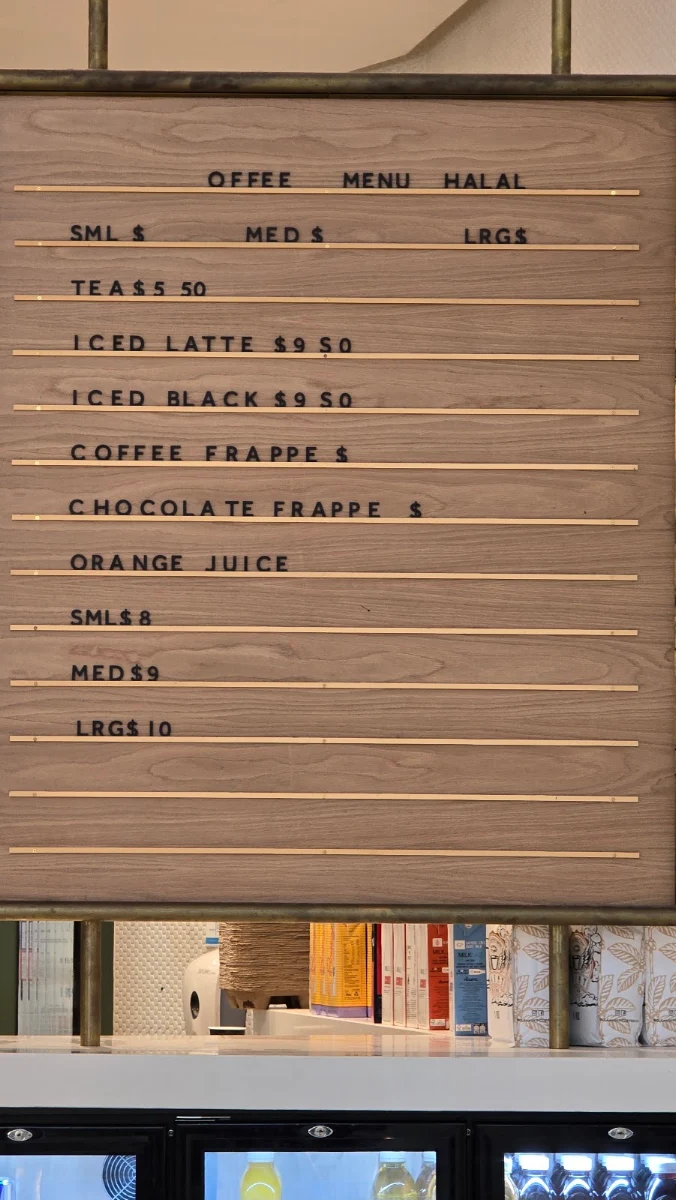 OFFEE MENU HALAL
SML $ MED $ LRG$
TEA $5 50
ICED LATTE $9 S0
ICED BLACK $9 S0
COFFEE FRAPPE $
CHOCOLATE FRAPPE $
ORANGE JUICE
SML$ 8
MED $9
LRG$ 10